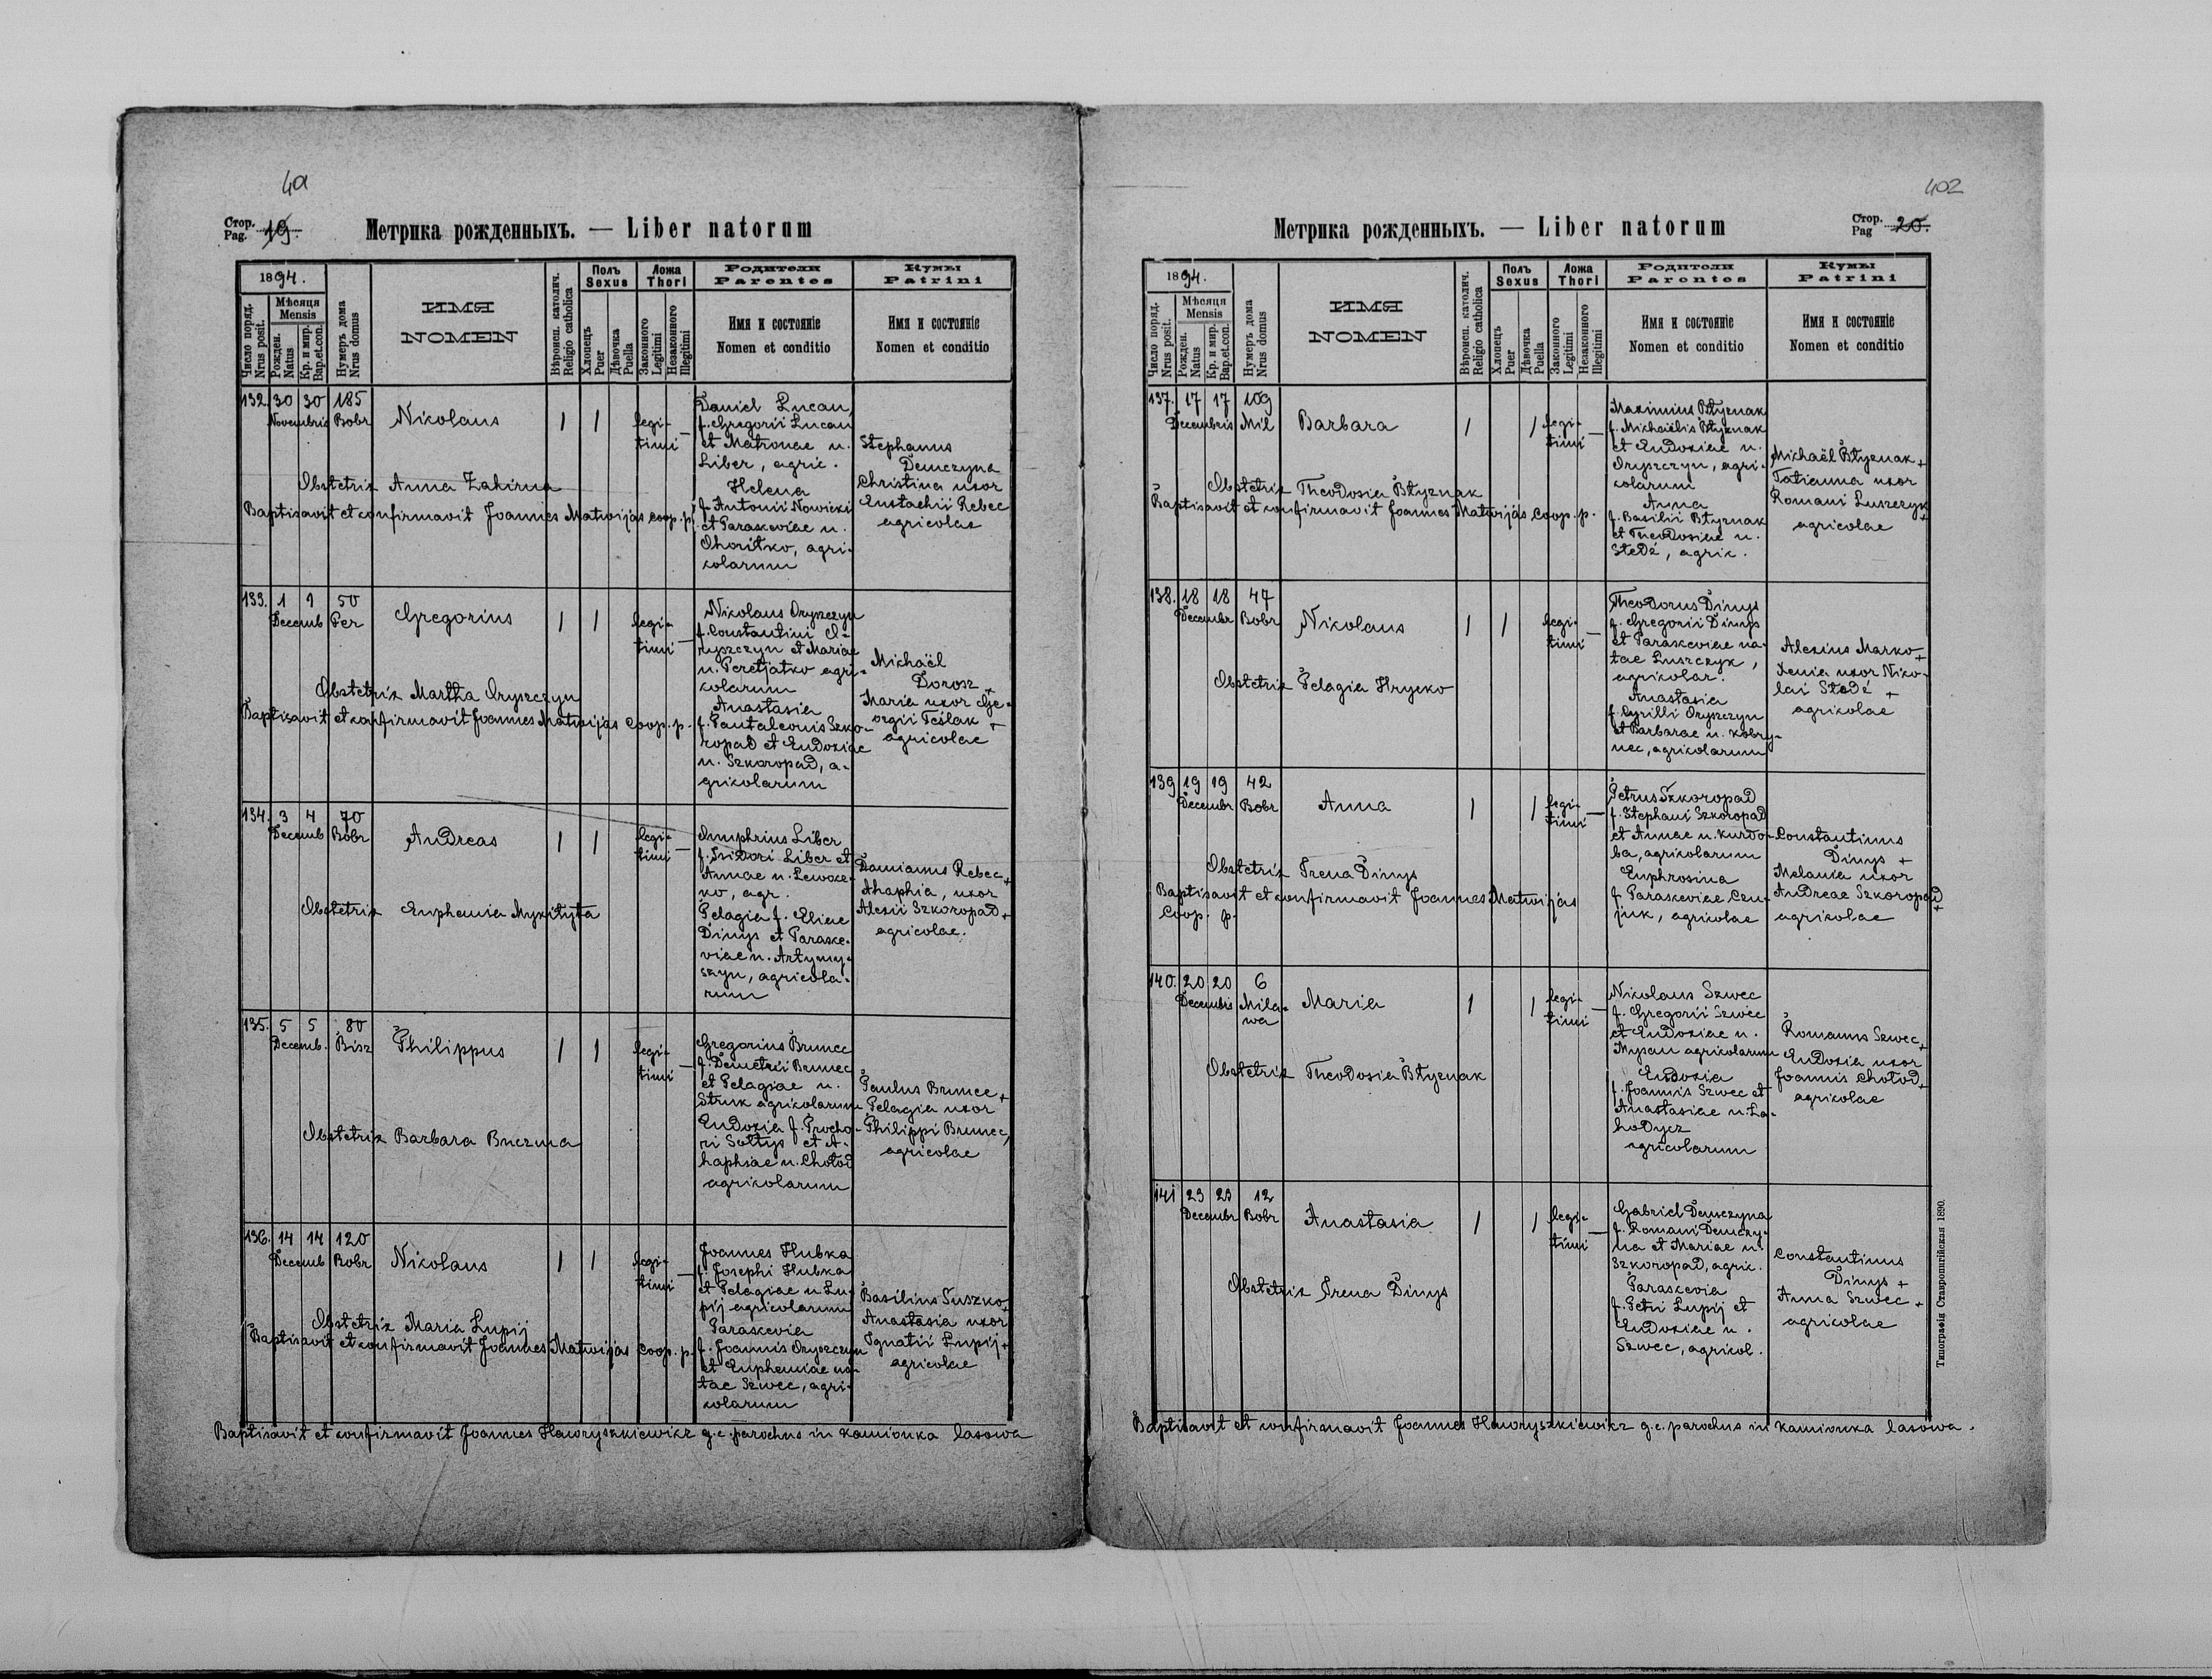 4a
Стор. Pag. 19.
Метрика рожденныхъ. — Liber natorum
1894.
Число поряд. Nrus posit.
Мѣсяця Mensis
Рожден. Natus
Кр. и мир. Bap. et. con.
Нумеръ дома Nrus domus
ИМЯ
NOMEN
Вѣронсп. католич. Religio catholica
Полъ Sexus
Хлопецъ Puer
Дѣвочка Puella
Ложа Thori
Законного Legitimi
Незаконного Illegitimi
Родители
Parentes
Имя и состояніе
Nomen et conditio
Кумы
Patrini
Имя и состояніе
Nomen et conditio
132. 30 30 185
Novembris Bobr
Nikolaus
1 1 legi-
timi —
Daniel Lucan,
f. Gregorii Lucan
et Matronae n.
Liber, agric.
Helena
f. Antonii Nowicki
et Paraskeviae n.
Choritko, agri-
colarum
Stephanus
Demczyna
Christina uxor
Eustachii Rebec
agricolae
Obstetrix Anna Zakirna
Baptisavit et confirmavit Joannes Matwijas coop. p.
133. 1 1 50
Decemb Per
Gregorius
1 1 legi-
timi —
Nikolaus Oryszczyn
f. Constantini O-
ryszczyn et Mariae
n. Peretjatko agri-
colarum
Anastasia
f. Pantaleonis Szko-
ropad et Eudoxiae
n. Szkoropad, a-
gricolarum
Michaël
Dorosz +
Maria uxor Ge-
orgii Teslak +
agricolae
Obstetrix Martha Oryszczyn
Baptisavit et confirmavit Joannes Matwijas coop. p.
134. 3 4 70
Decemb Bobr
Andreas
1 1 legi-
timi —
Onuphrius Liber
f. Isidori Liber et
Annae n. Lewoce-
ko, agr.
Pelagia f. Eliae
Dinys et Paraske-
viae n. Artymy-
szyn, agricola-
rum
Damianus Rebec +
Ahaphia, uxor
Alexii Szkoropad +
agricolae.
Obstetrix Euphemia Mykityta
135. 5 5 80
Decemb. Bisz
Philippus
1 1 legi-
timi —
Gregorius Brunec
f. Demetrii Brunec
et Pelagiae n.
Struk agricolarum
Eudoxia f. Procho-
ri Sołtys et A-
haphiae n. Chołod
agricolarum
Paulus Brunec +
Pelagia uxor
Philippi Brunec,
agricolae
Obstetrix Barbara Buczma
136. 14 14 120
Decemb Bobr
Nikolaus
1 1 legi-
timi —
Joannes Hubka
f. Josephi Hubka
et Pelagiae n. Lu-
pij agricolarum
Paraskevia
f. Joannis Oryszczyn
et Euphemiae na-
tae Szwec, agri-
colarum
Basilius Suszko +
Anastasia uxor
Ignatii Lupij +
agricolae
Obstetrix Maria Lupij
Baptisavit et confirmavit Joannes Matwijas coop. p.
Baptisavit et confirmavit Joannes Hawryszkiewicz g. c. parochus in Kamionka lasowa
402
Метрика рожденныхъ. — Liber natorum
Стор. Pag 20.
1894.
Число поряд. Nrus posit.
Мѣсяця Mensis
Рожден. Natus
Кр. и мир. Bap. et. con.
Нумеръ дома Nrus domus
ИМЯ
NOMEN
Вѣронсп. католич. Religio catholica
Полъ Sexus
Хлопецъ Puer
Дѣвочка Puella
Ложа Thori
Законного Legitimi
Незаконного Illegitimi
Родители
Parentes
Имя и состояніе
Nomen et conditio
Кумы
Patrini
Имя и состояніе
Nomen et conditio
137. 17 17 109
Decembris Mil
Barbara
1 1 legi-
timi —
Maximius Błyznak
f. Michaëlis Błyznak
et Eudoxiae n.
Oryszczyn, agri-
colarum
Anna
f. Basilii Błyznak
et Theodosiae n.
Stedź, agric.
Michaël Błyznak +
Tatianna uxor
Romani Luszczyk +
agricolae
Obstetrix Theodosia Błyznak
Baptisavit et confirmavit Joannes Matwijas coop. p.
138. 18 18 47
Decembr Bobr
Nikolaus
1 1 legi-
timi —
Theodorus Dinys
f. Gregorii Dinys
et Paraskeviae na-
tae Luszczyk,
agricolar.
Anastasia
f. Cyrilli Oryszczyn
et Barbarae n. Kobry-
nec, agricolarum
Alexius Marko +
Xenia uxor Niko-
lai Stedź +
agricolae
Obstetrix Pelagia Hrycko
139 19 19 42
Decembr Bobr
Anna
1 1 legi-
timi —
Petrus Szkoropad
f. Stephani Szkoropad
et Annae n. Kurdo-
ba, agricolarum
Euphrosina
f. Paraskeviae Ceu-
juk, agricolae
Constantinus
Dinys +
Melania uxor
Andreae Szkoropad +
agricolae
Obstetrix Irena Dinys
Baptisavit et confirmavit Joannes Matwijas
coop. p.
140. 20 20 6
Decembris Mila-
wa
Maria
1 1 legi-
timi —
Nikolaus Szwec
f. Gregorii Szwec
et Eudoxiae n.
Mysan agricolarum
Eudoxia
f. Joannis Szwec et
Anastasiae n. La-
hodycz
agricolarum
Romanus Szwec +
Eudoxia uxor
Joannis Chołod +
agricolae
Obstetrix Theodosia Błyznak
141 23 23 12
Decembr Bobr
Anastasia
1 1 legi-
timi —
Gabriel Demczyna
f. Romani Demczy-
na et Mariae n.
Szkoropad, agric.
Paraskevia
f. Petri Lupij et
Eudoxiae n.
Szwec, agricol.
Constantinus
Dinys +
Anna Szwec +
agricolae
Obstetrix Irena Dinys
Baptisavit et confirmavit Joannes Hawryszkiewicz g. c. parochus in Kamionka lasowa.
Типографія Ставропигійская 1890.